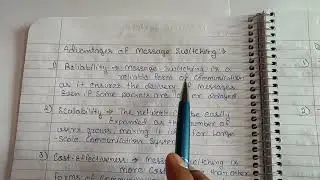 Advantages of Message Switching :
1) Reliability → Message Switching is a
reliable form of Communication
as it ensures the delivery of messages
Even if Some packets are or delayed
2) Scalability → The network can be easily
Expanded as the number of
users grows, making it ideal for large
-Scale Communication System
3) Cost-effectiveness → Message Switching is
more Cost- than other
forms of Communication